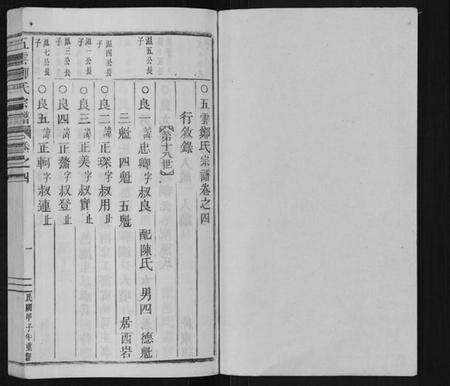 ○五雲鄒氏宗譜卷之四
行敘錄
【第十八世】
溫五公長子
○良一諱忠卿字叔良 配陳氏 男四 德魁
三魁 四魁 五魁 居西岩
溫四公長子
○良二諱正琛字叔用止
溫一公長子
○良三諱正美字叔實止
溫三公長子
○良四諱正簫字叔登止
溫七公長子
○良五諱正軻字叔連止
五雲鄒氏宗譜 卷之四
一
民國甲子年重修